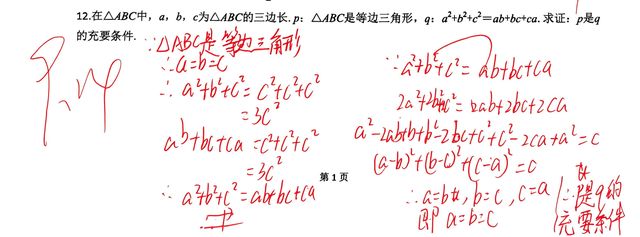 12.在△ABC中，a，b，c为△ABC的三边长.p：△ABC是等边三角形，q：a²+b²+c²＝ab+bc+ca.求证：p是q
的充要条件.
∵△ABC是等边三角形
∴a=b=c
∴a²+b²+c²=c²+c²+c²
=3c²
ab+bc+ca=c²+c²+c²
=3c²
∴a²+b²+c²=ab+bc+ca
第1页
∵a²+b²+c²=ab+bc+ca
2a²+2b²+2c²=2ab+2bc+2ca
a²-2ab+b²+b²-2bc+c²+c²-2ca+a²=0
(a-b)²+(b-c)²+(c-a)²=0
∴a=b, b=c, c=a
即 a=b=c
∴p是q的
充要条件